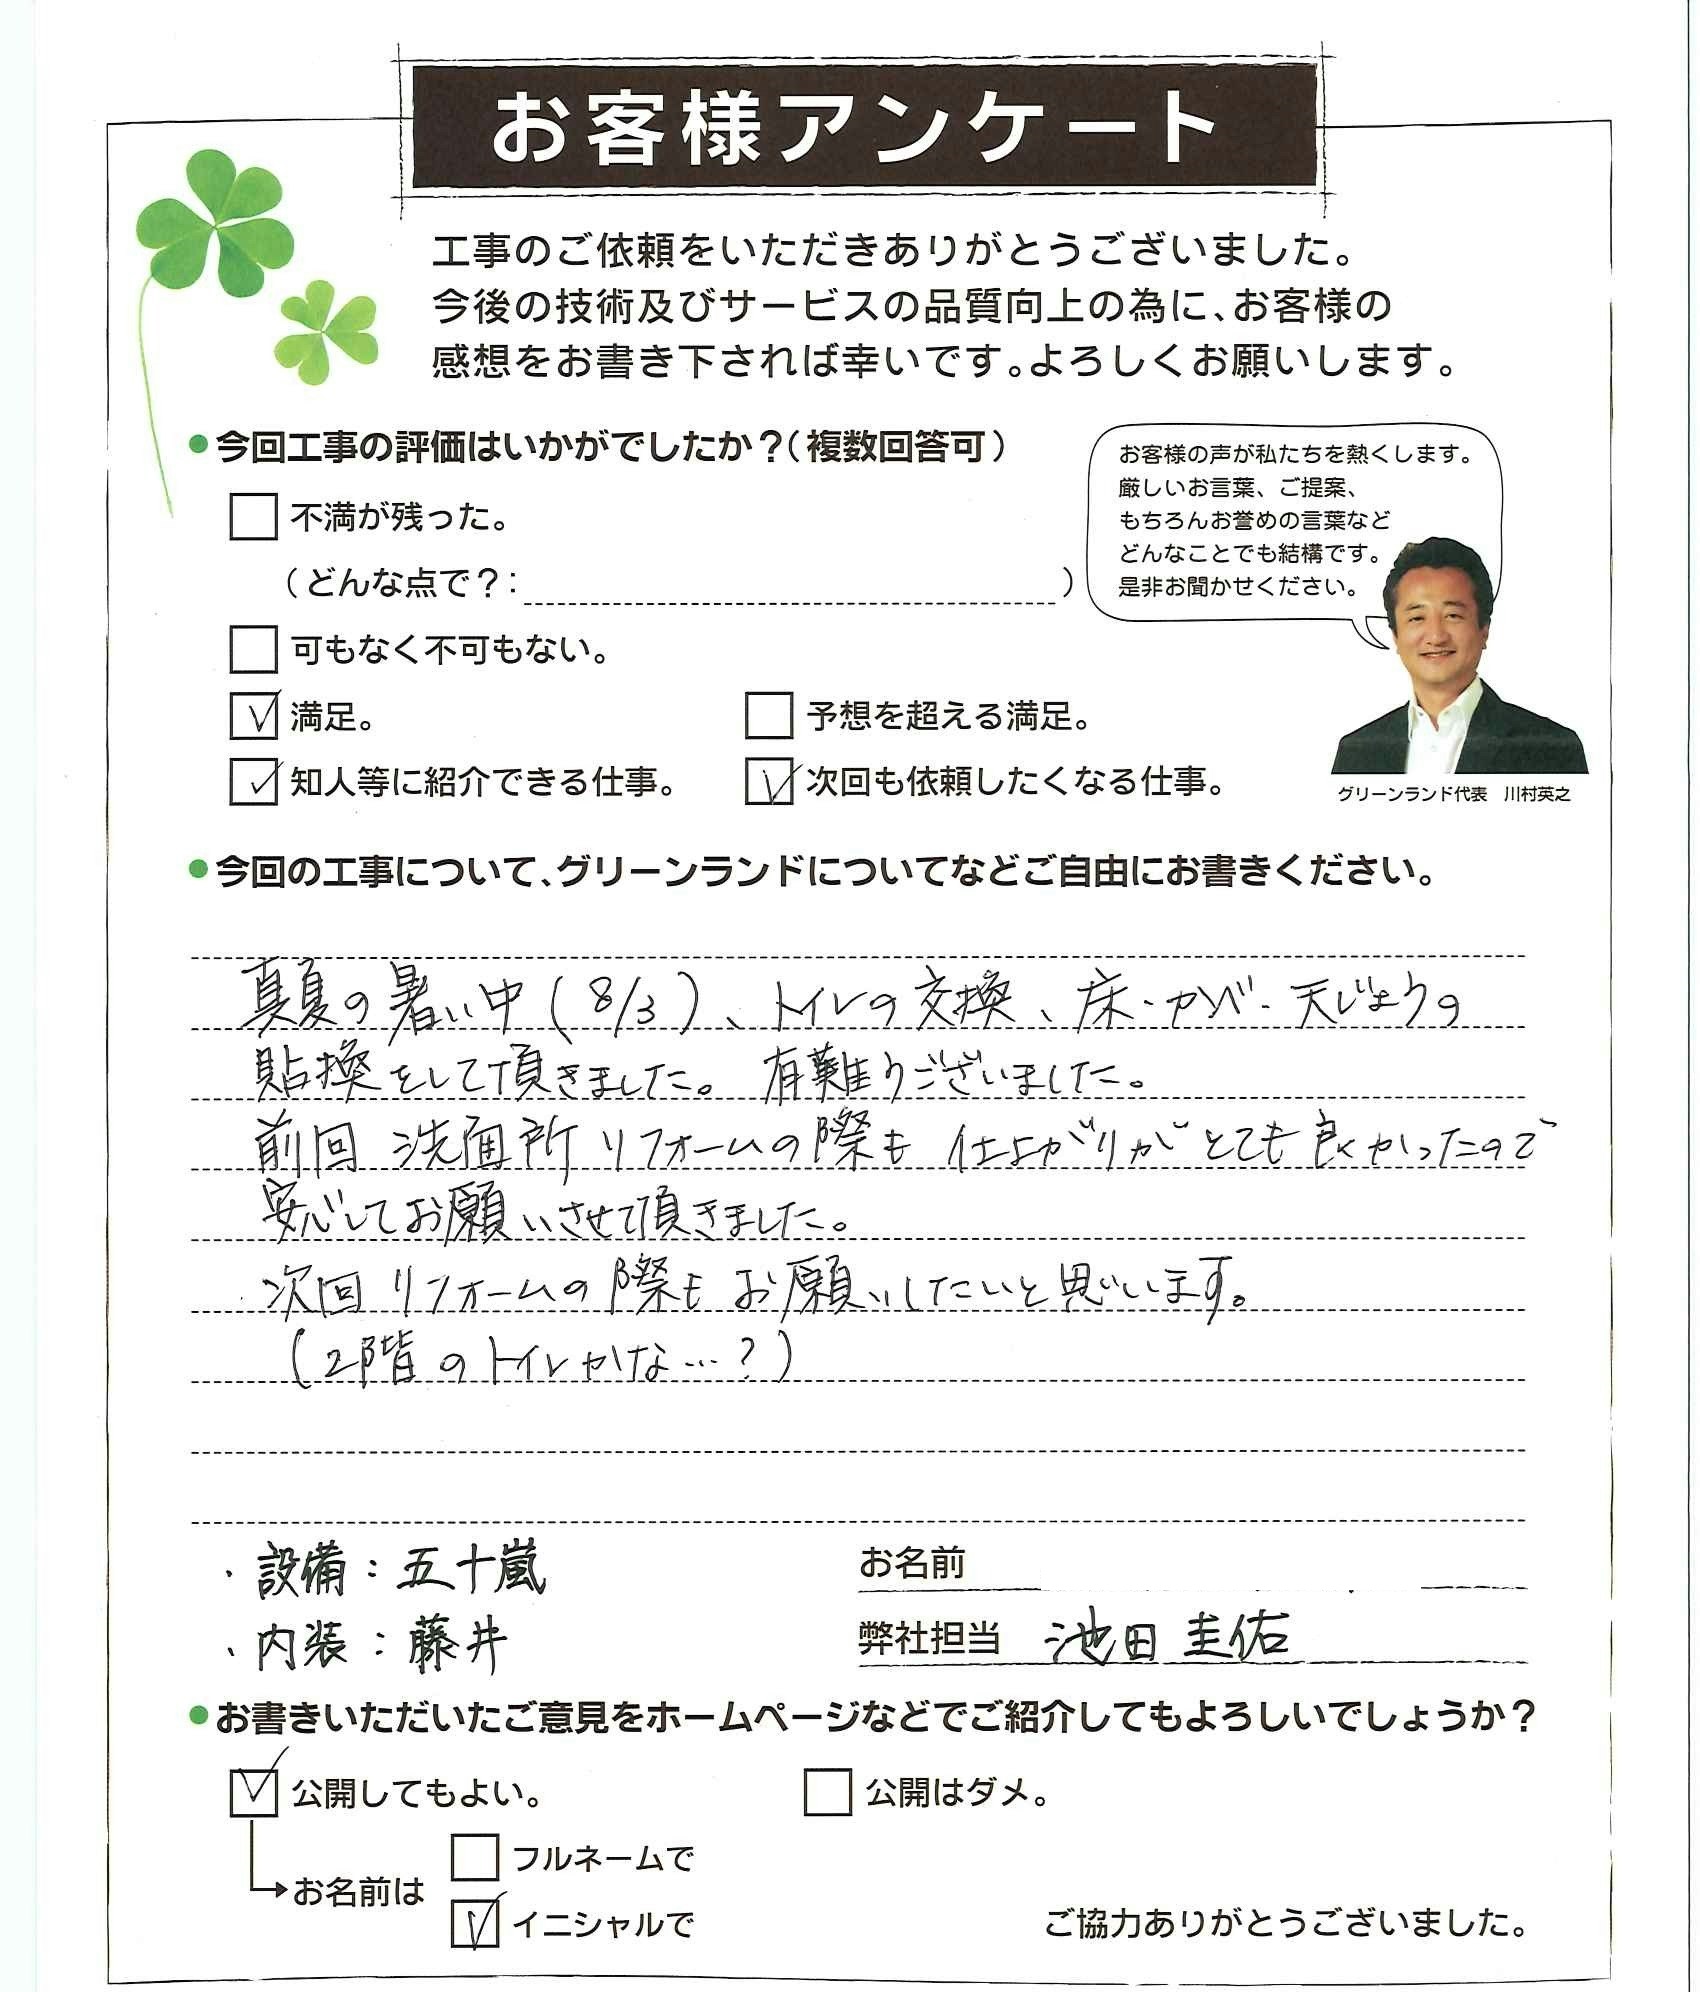 お客様アンケート
工事のご依頼をいただきありがとうございました。
今後の技術及びサービスの品質向上の為に、お客様の
感想をお書き下されば幸いです。よろしくお願いします。
●今回工事の評価はいかがでしたか？（複数回答可）
不満が残った。
（どんな点で？：　）
可もなく不可もない。
満足。
予想を超える満足。
知人等に紹介できる仕事。
次回も依頼したくなる仕事。
お客様の声が私たちを熱くします。
厳しいお言葉、ご提案、
もちろんお誉めの言葉など
どんなことでも結構です。
是非お聞かせください。
グリーンランド代表　川村英之
●今回の工事について、グリーンランドについてなどご自由にお書きください。
真夏の暑い中（8/3）、トイレの交換、床・かべ・天じょうの
貼換をして頂きました。有難うございました。
前回 洗面所リフォームの際も 仕上がりがとても良かったので
安心してお願いさせて頂きました。
次回 リフォームの際も お願いしたいと思います。
（2階のトイレかな…？）
・設備：五十嵐
・内装：藤井
お名前
弊社担当　池田 圭佑
●お書きいただいたご意見をホームページなどでご紹介してもよろしいでしょうか？
公開してもよい。
公開はダメ。
お名前は
フルネームで
イニシャルで
ご協力ありがとうございました。